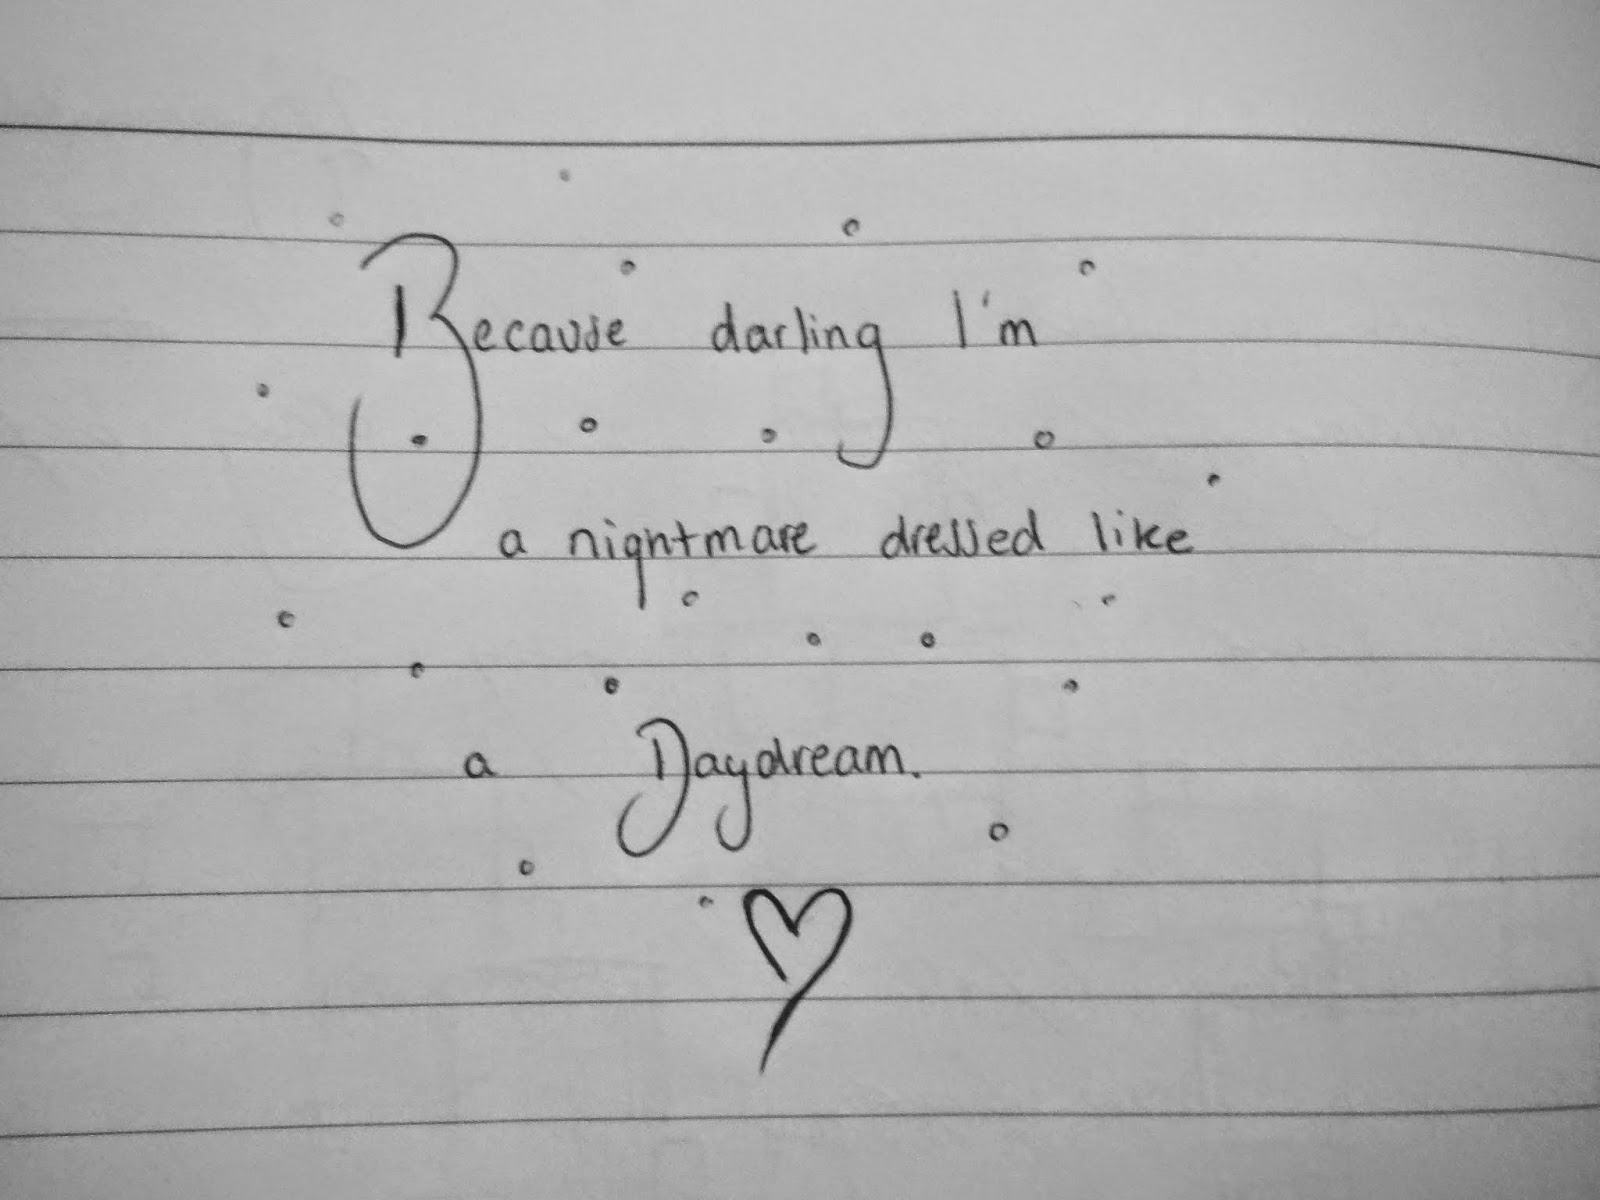 Because darling I'm
a nightmare dressed like
a Daydream.